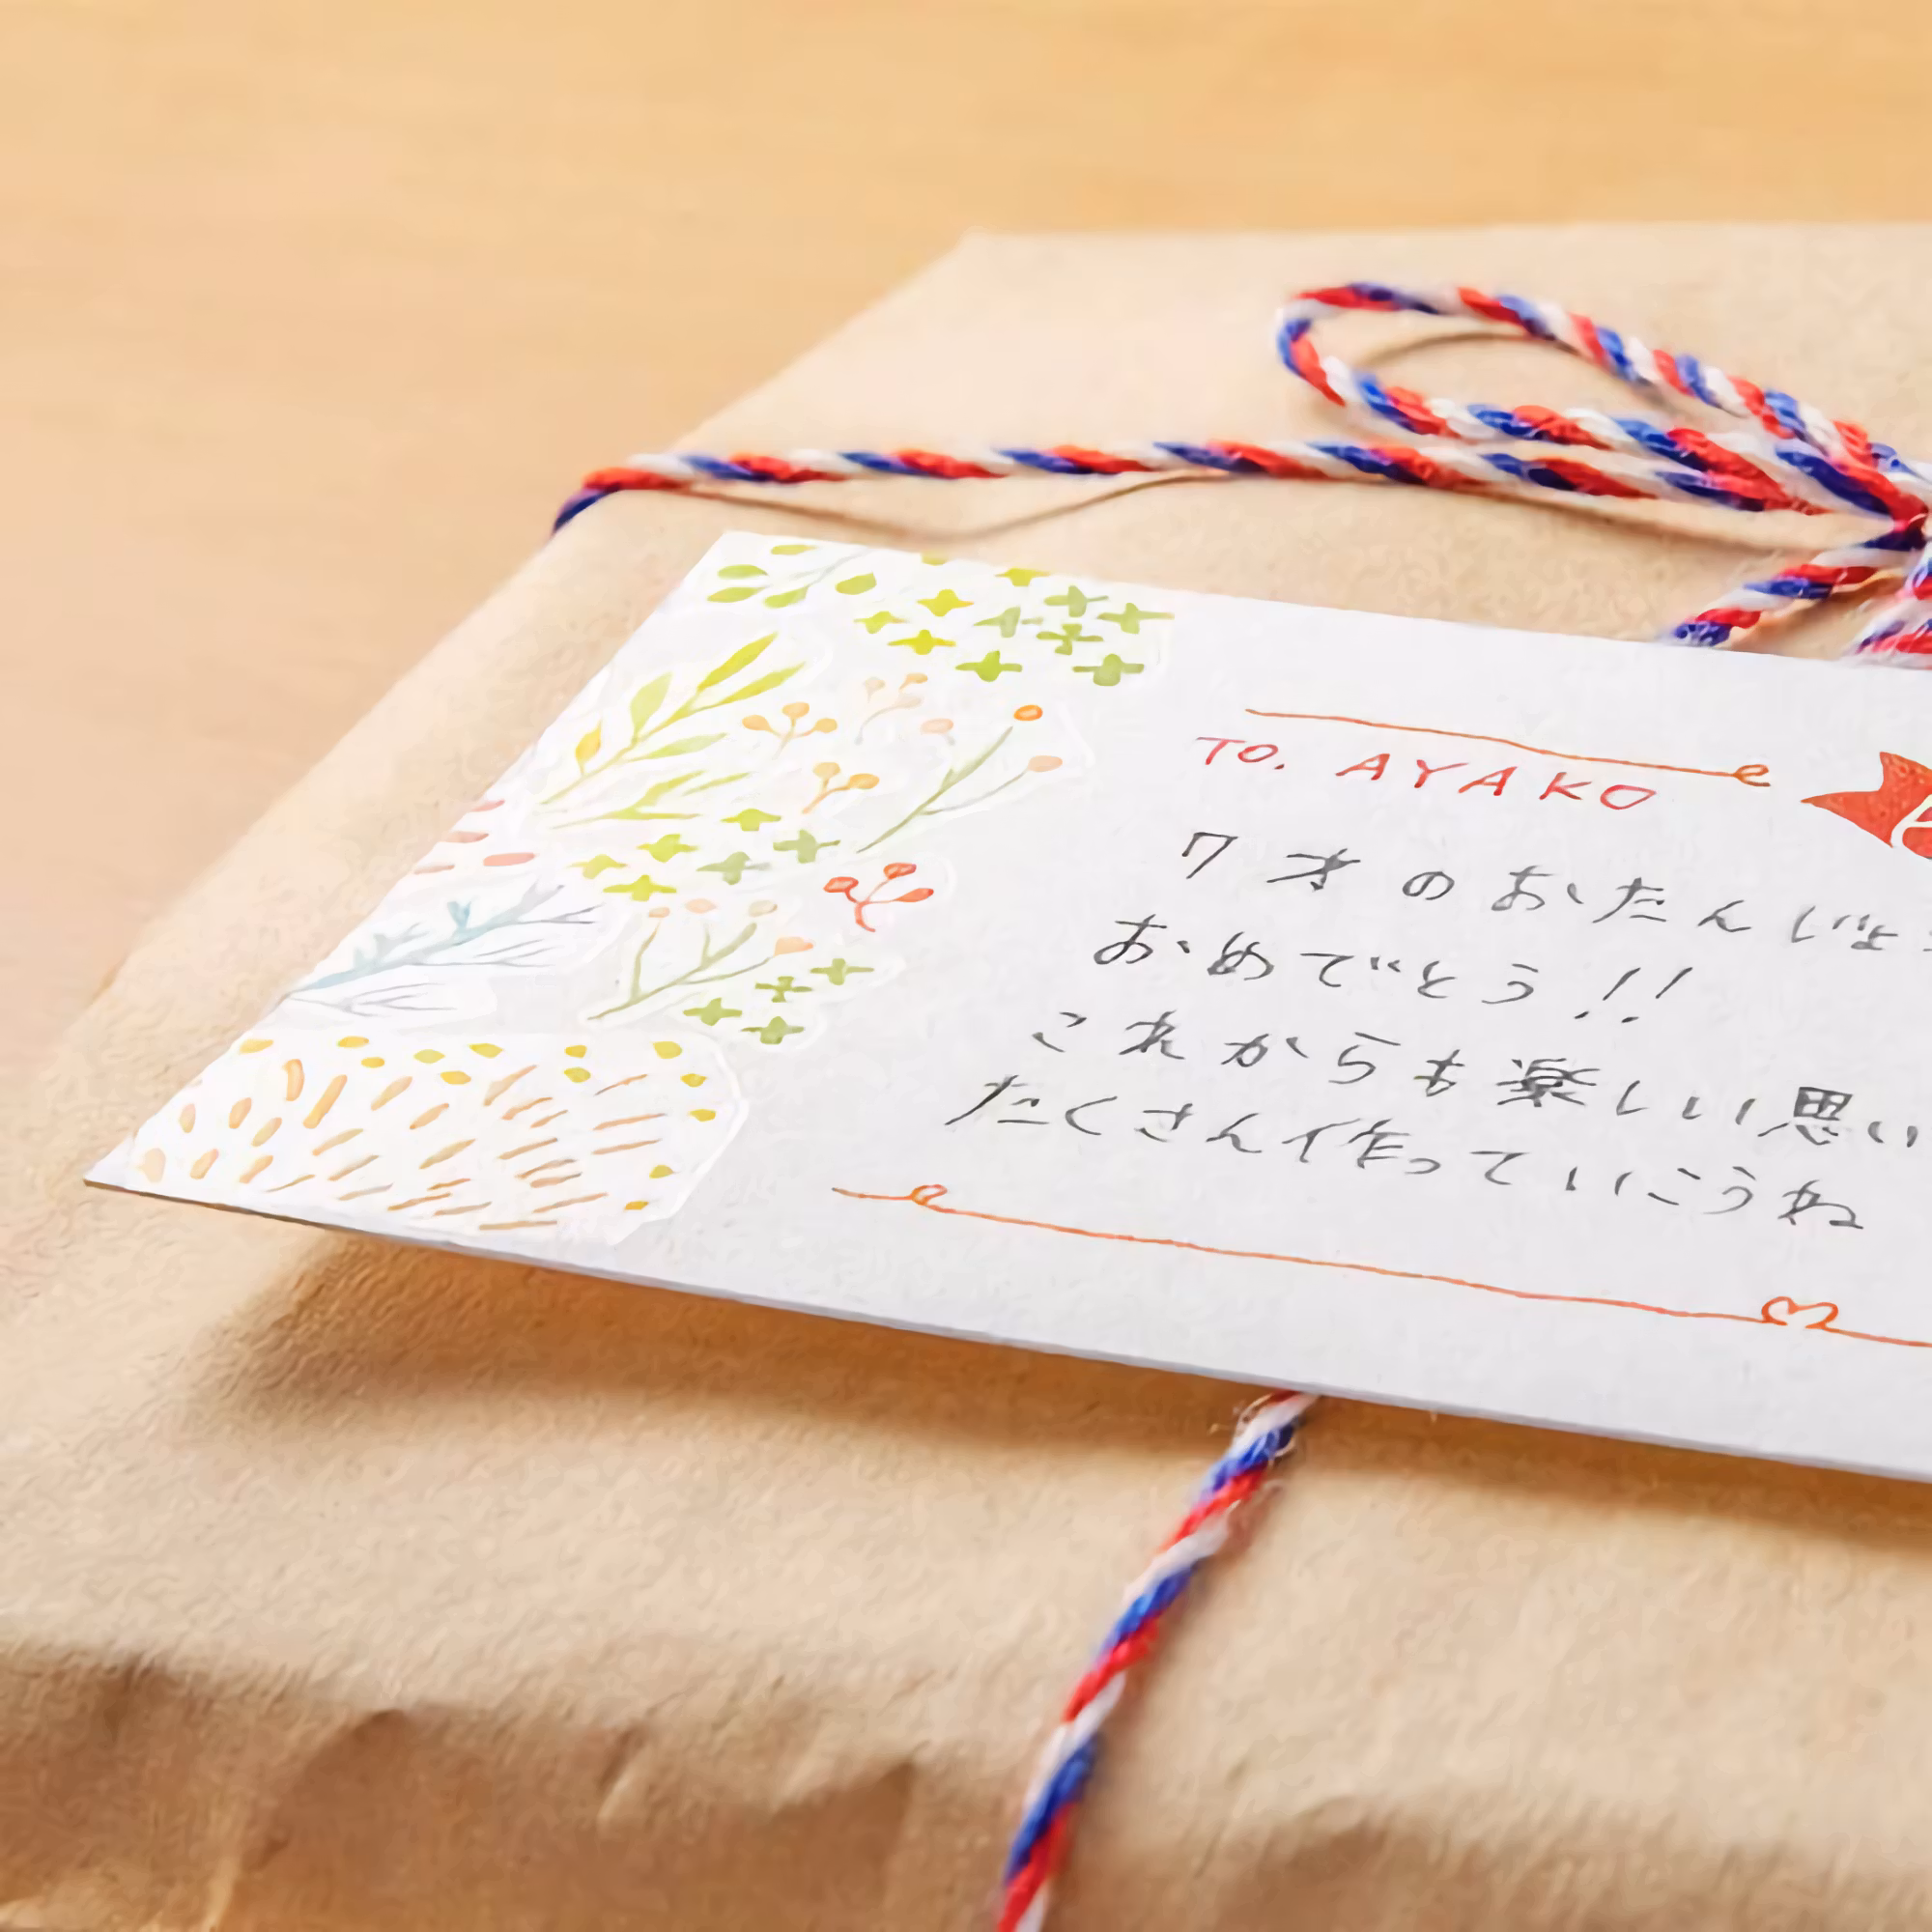 TO. AYAKO
7才のおたんじょ
おめでとう!!
これからも楽しい思い
たくさん作っていこうね